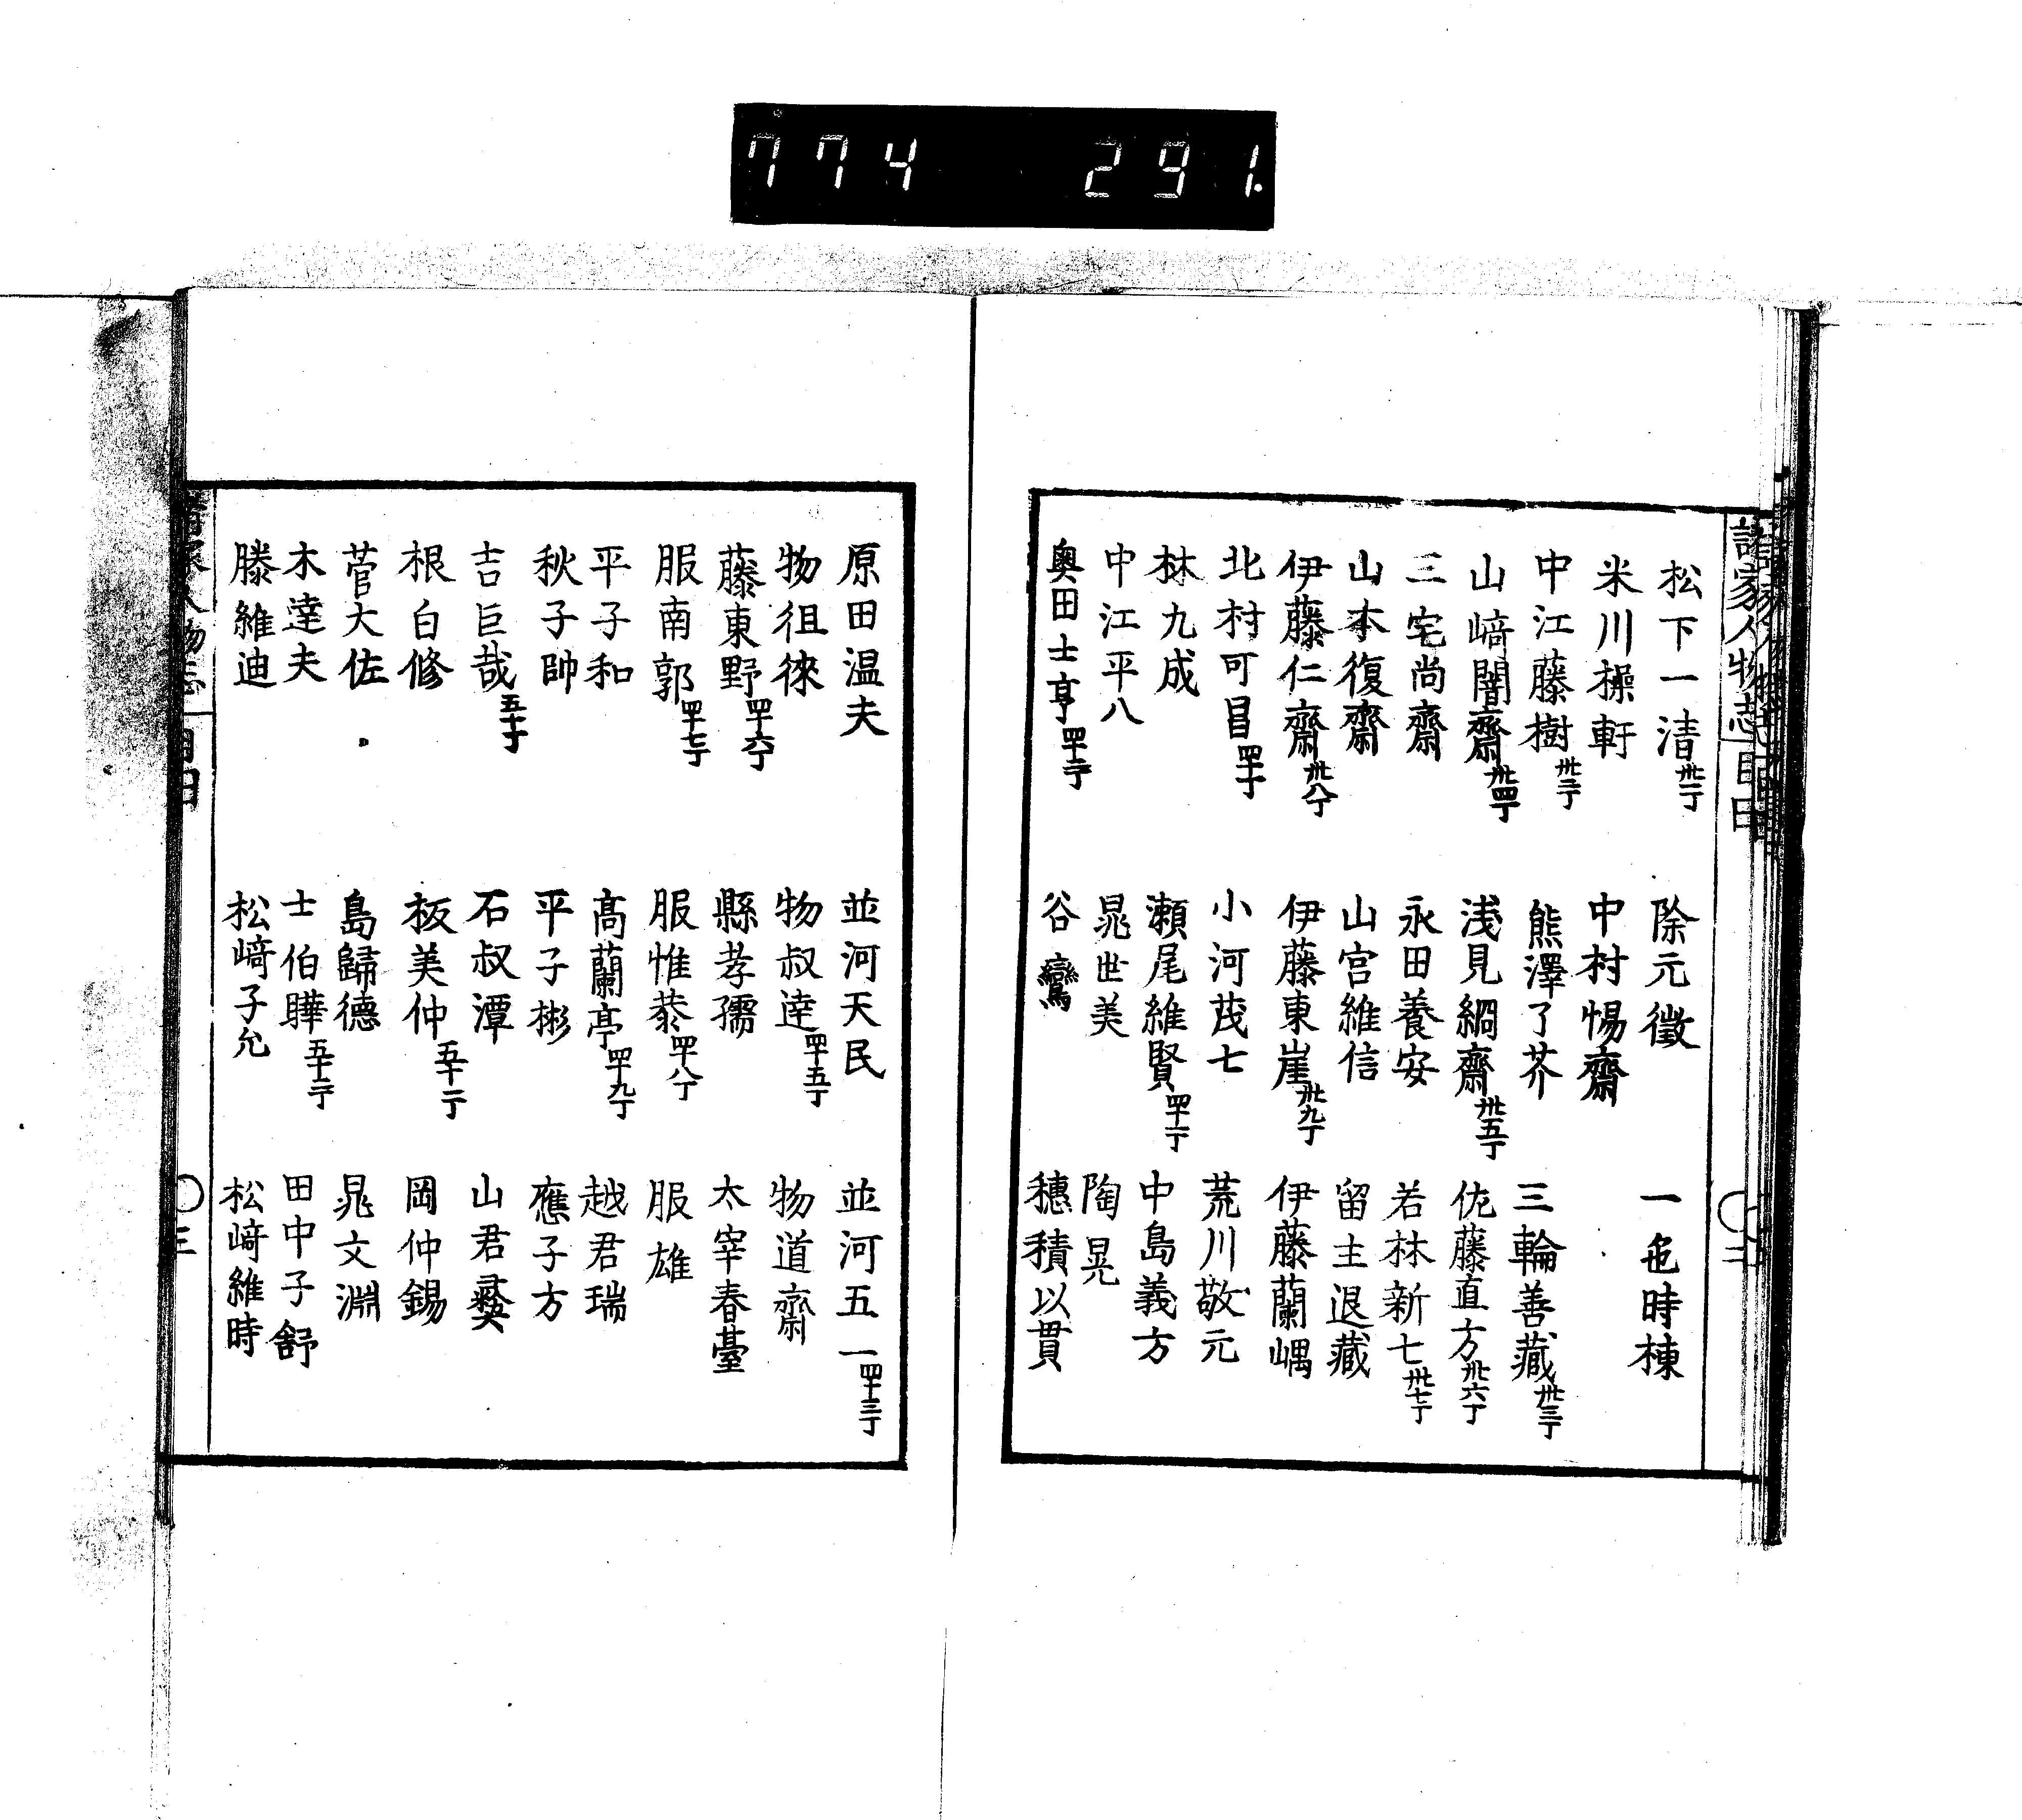 774 291.
諸家人物志 目录
松下一清 卅一丁 除元徵 一色時棟
米川操軒 中村惕齋
中江藤樹 卅二丁 熊澤了芥 三輪善藏 卅三丁
山﨑闇齋 卅四丁 浅見絅齋 卅五丁 佐藤直方 卅六丁
三宅尚齋 永田養安 若林新七 卅七丁
山本復齋 山宮維信 留主退藏
伊藤仁齋 卅八丁 伊藤東崖 卅九丁 伊藤蘭嵎
北村可昌 四十丁 小河茂七 荒川敬元
林九成 瀬尾維賢 四十一丁 中島義方
中江平八 晁世美 陶晃
奥田士亨 四十二丁 谷鸞 穗積以貫
原田温夫 並河天民 並河五一 四十三丁
物徂徠 物叔達 四十五丁 物道齋
藤東野 四十六丁 縣孝孺 太宰春臺
服南郭 四十七丁 服惟恭 四十八丁 服雄
平子和 高蘭亭 四十九丁 越君瑞
秋子帥 平子彬 應子方
吉臣哉 五十丁 石叔潭 山君彜
根白修 板美仲 五十一丁 岡仲錫
菅大佐 島歸德 晁文淵
木達夫 士伯曄 五十二丁 田中子舒
滕維迪 松﨑子允 松﨑維時
○三